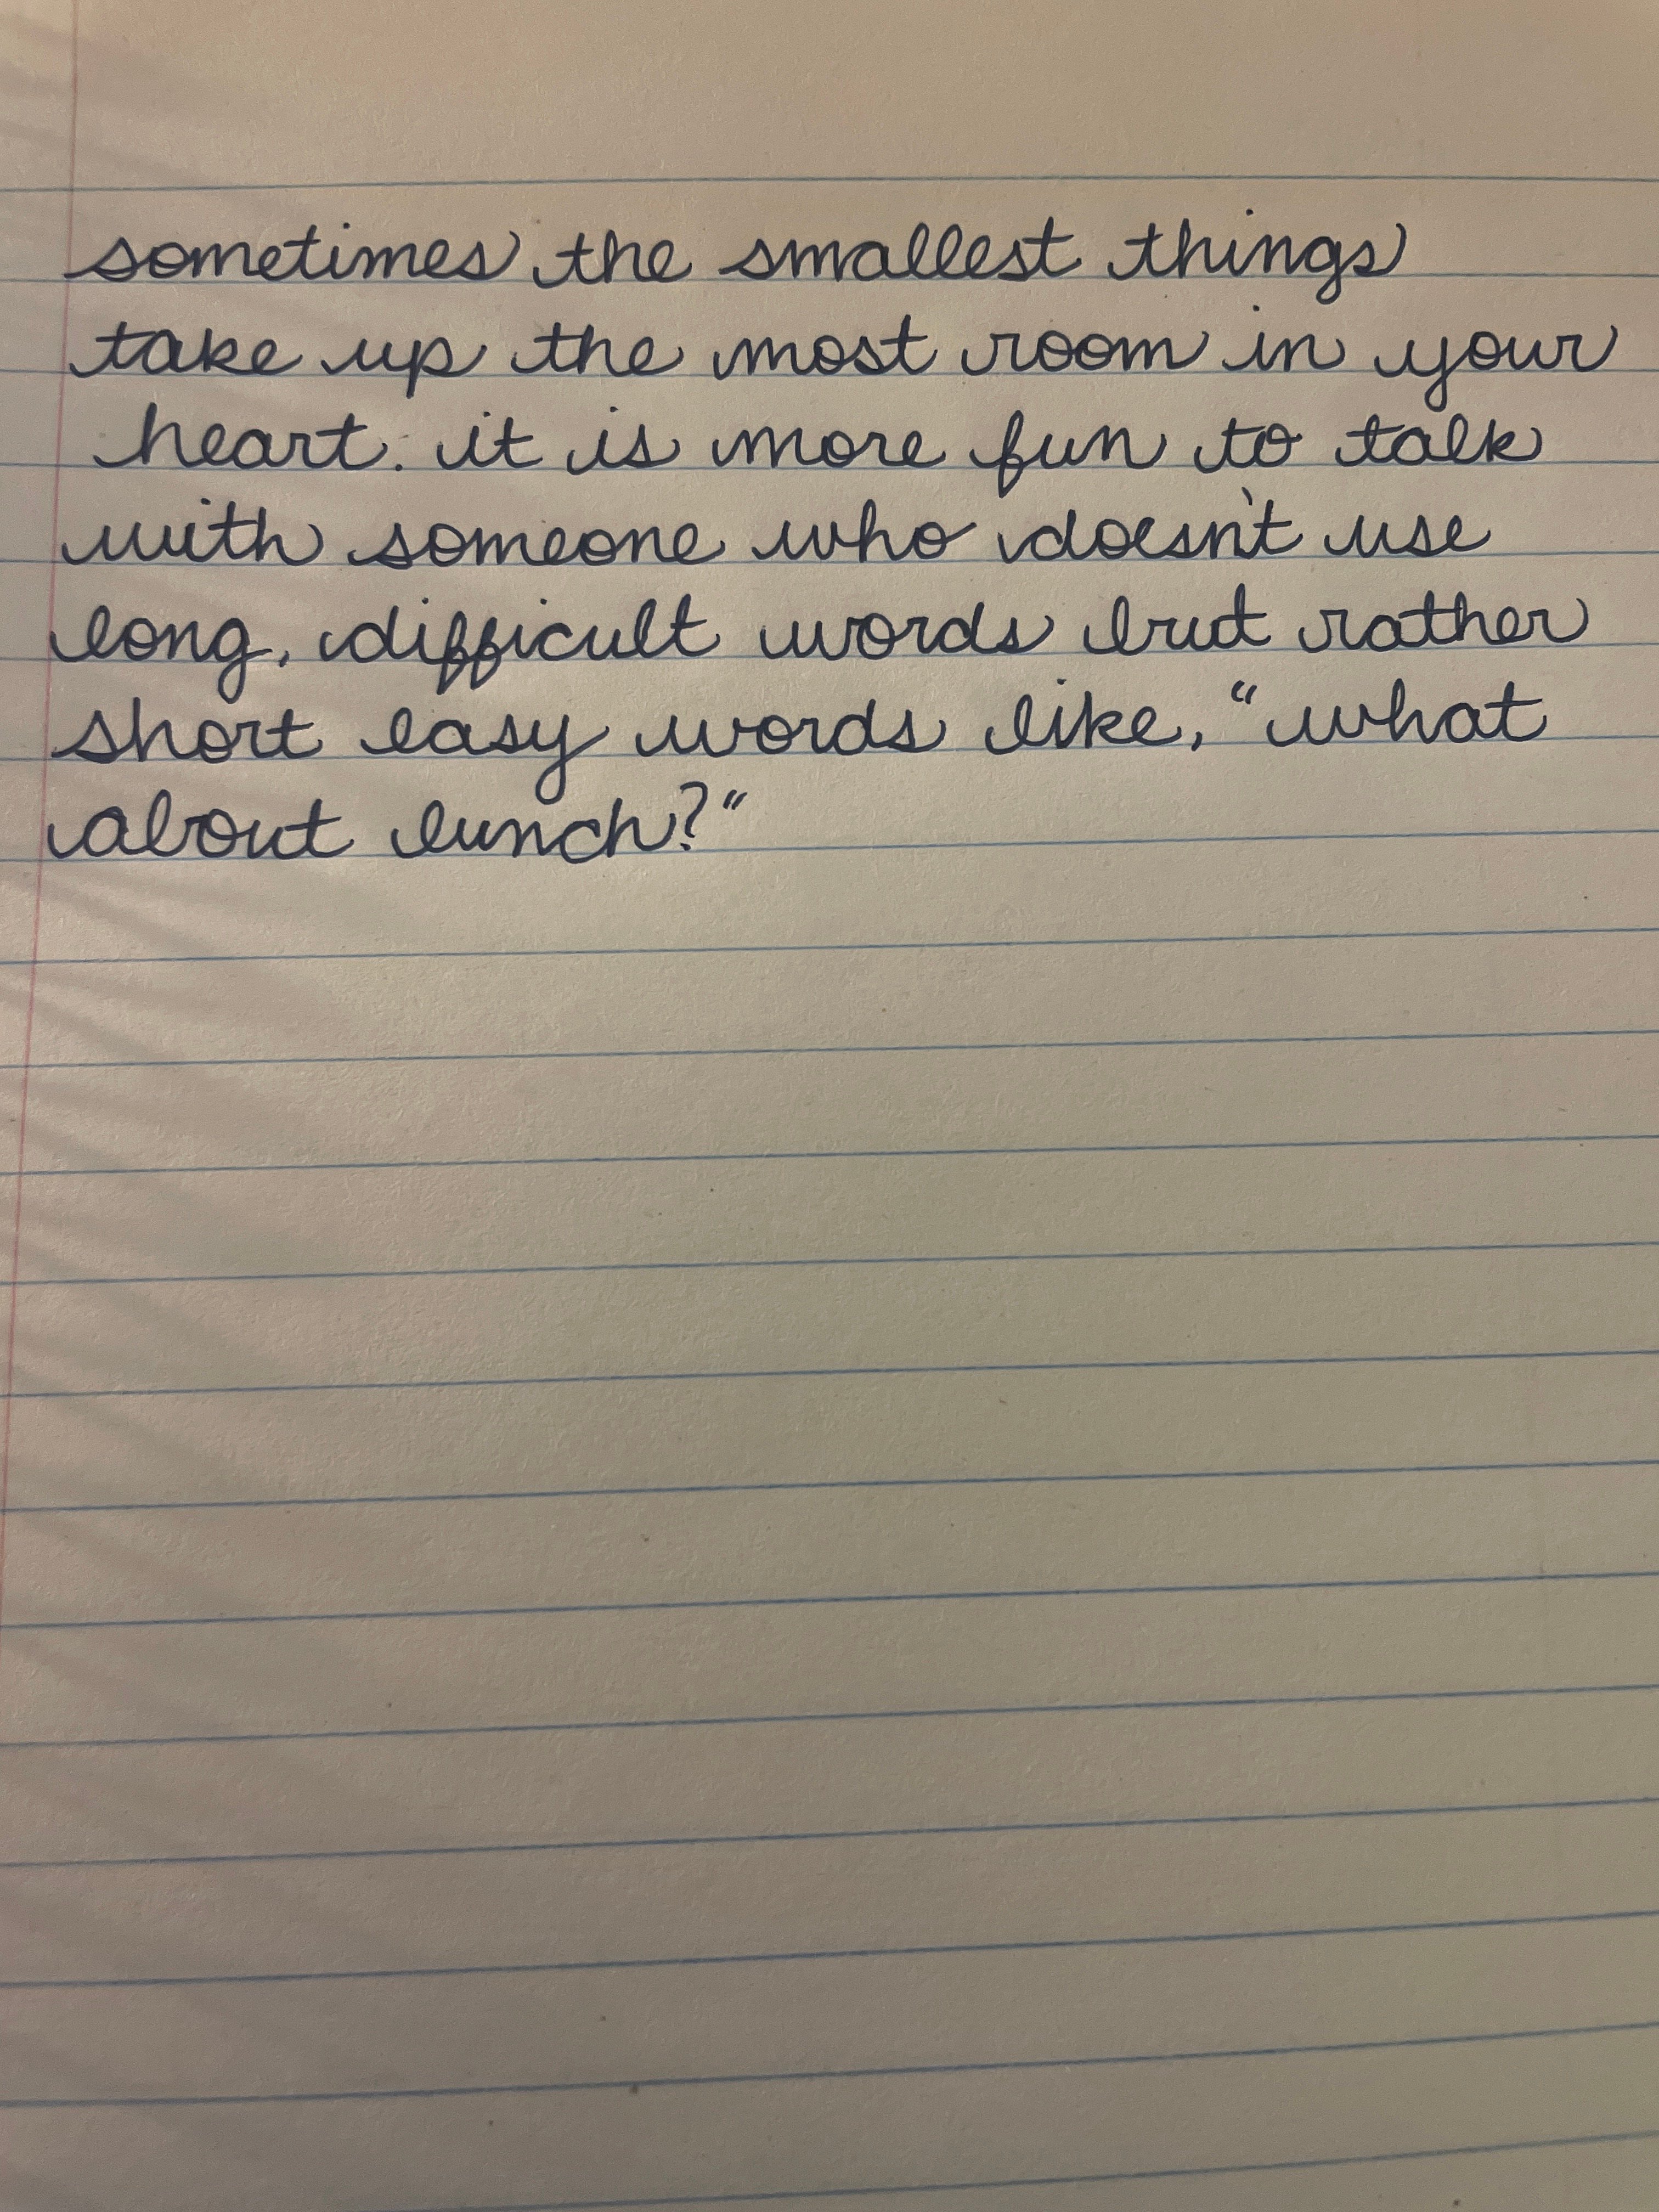 sometimes the smallest things
take up the most room in your
heart. it is more fun to talk
with someone who doesn't use
long, difficult words but rather
short easy words like, "what
about lunch?"